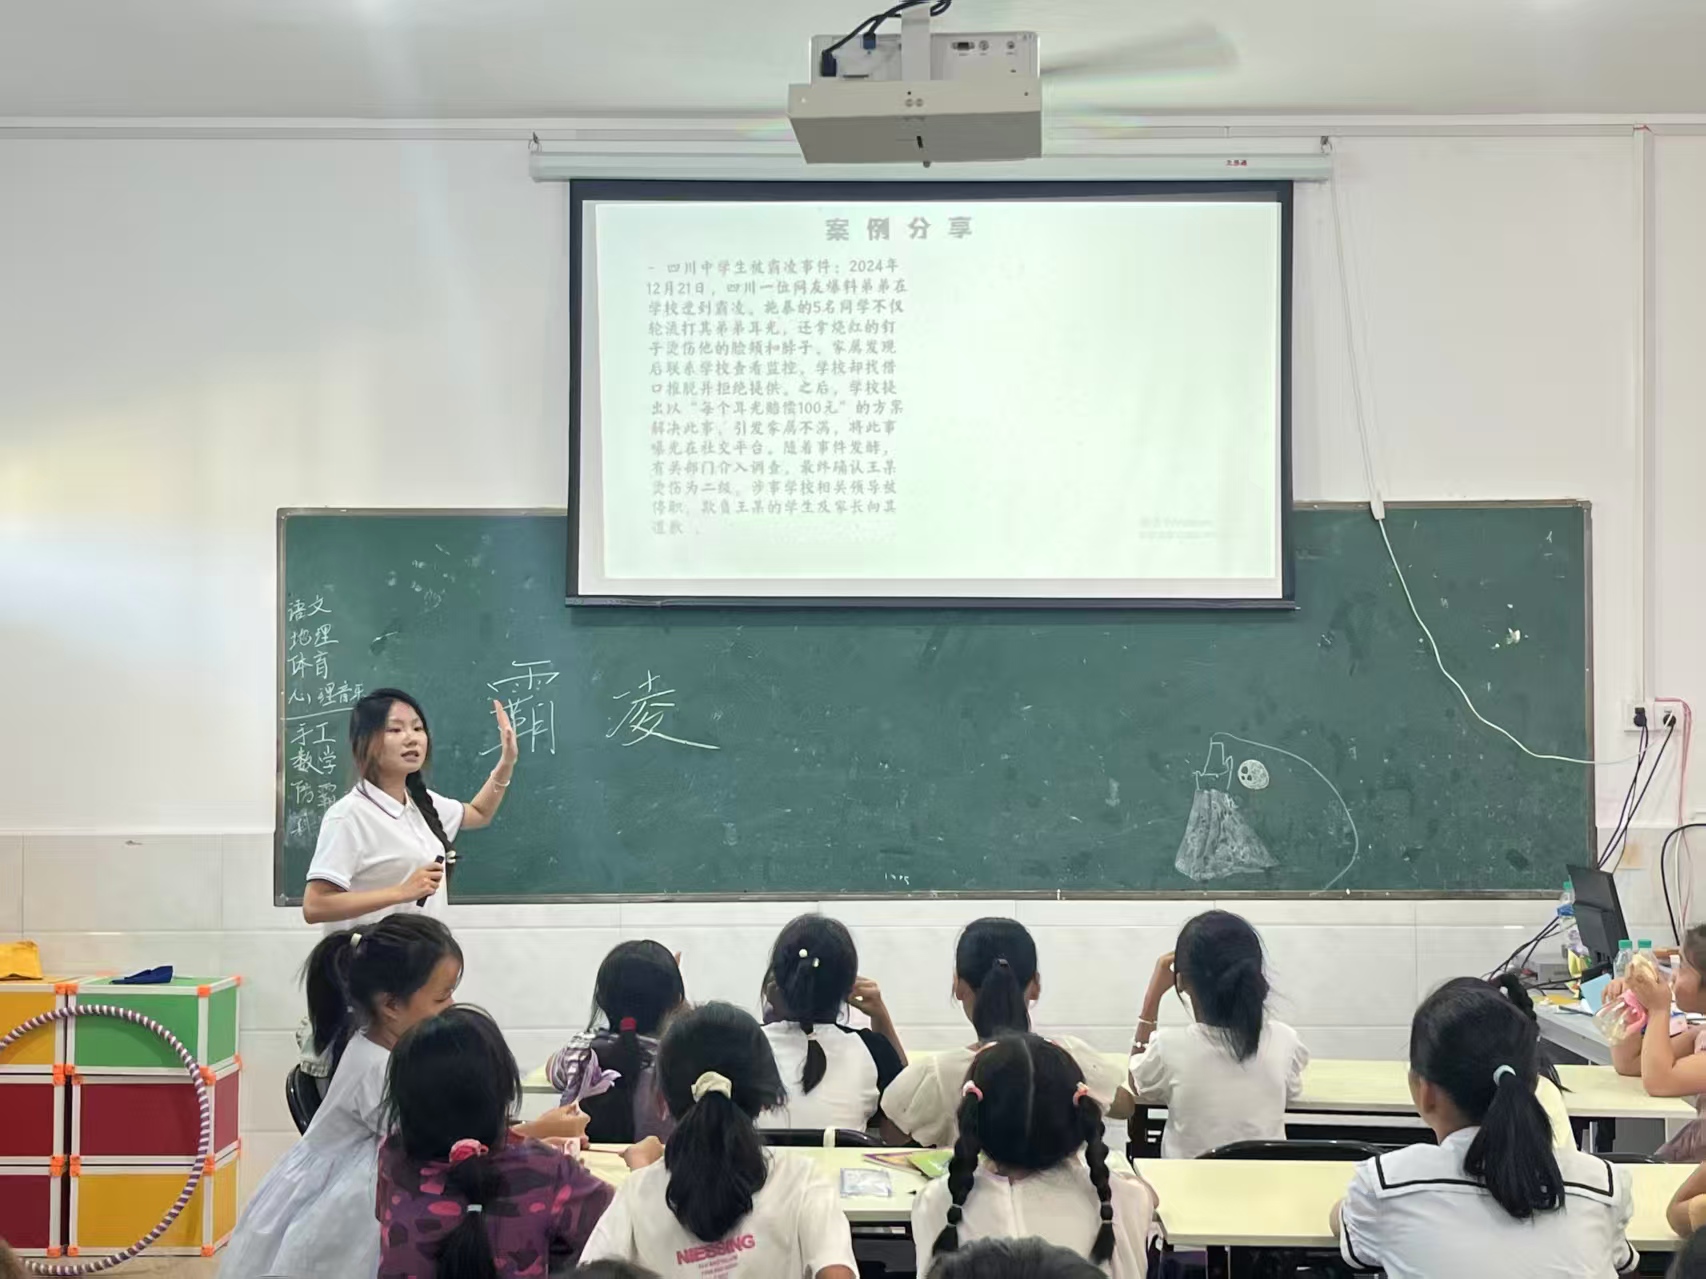 案例分享
- 四川中学生被霸凌事件：2024年
12月21日，四川一位网友爆料弟弟在
学校遭到霸凌。施暴的5名同学不仅
轮流打其弟弟耳光，还拿烧红的钉
子烫伤他的脸颊和脖子。家属发现
后联系学校查看监控，学校却找借
口推脱并拒绝提供。之后，学校提
出以“每个耳光赔偿100元”的方案
解决此事，引发家属不满，将此事
曝光在社交平台。随着事件发酵，
有关部门介入调查，最终确认王某
烫伤为二级，涉事学校相关领导被
停职，欺负王某的学生及家长向其
道歉 。
语文
地理
体育
心理音乐
手工
数学
防霸
霸凌
NIESSING